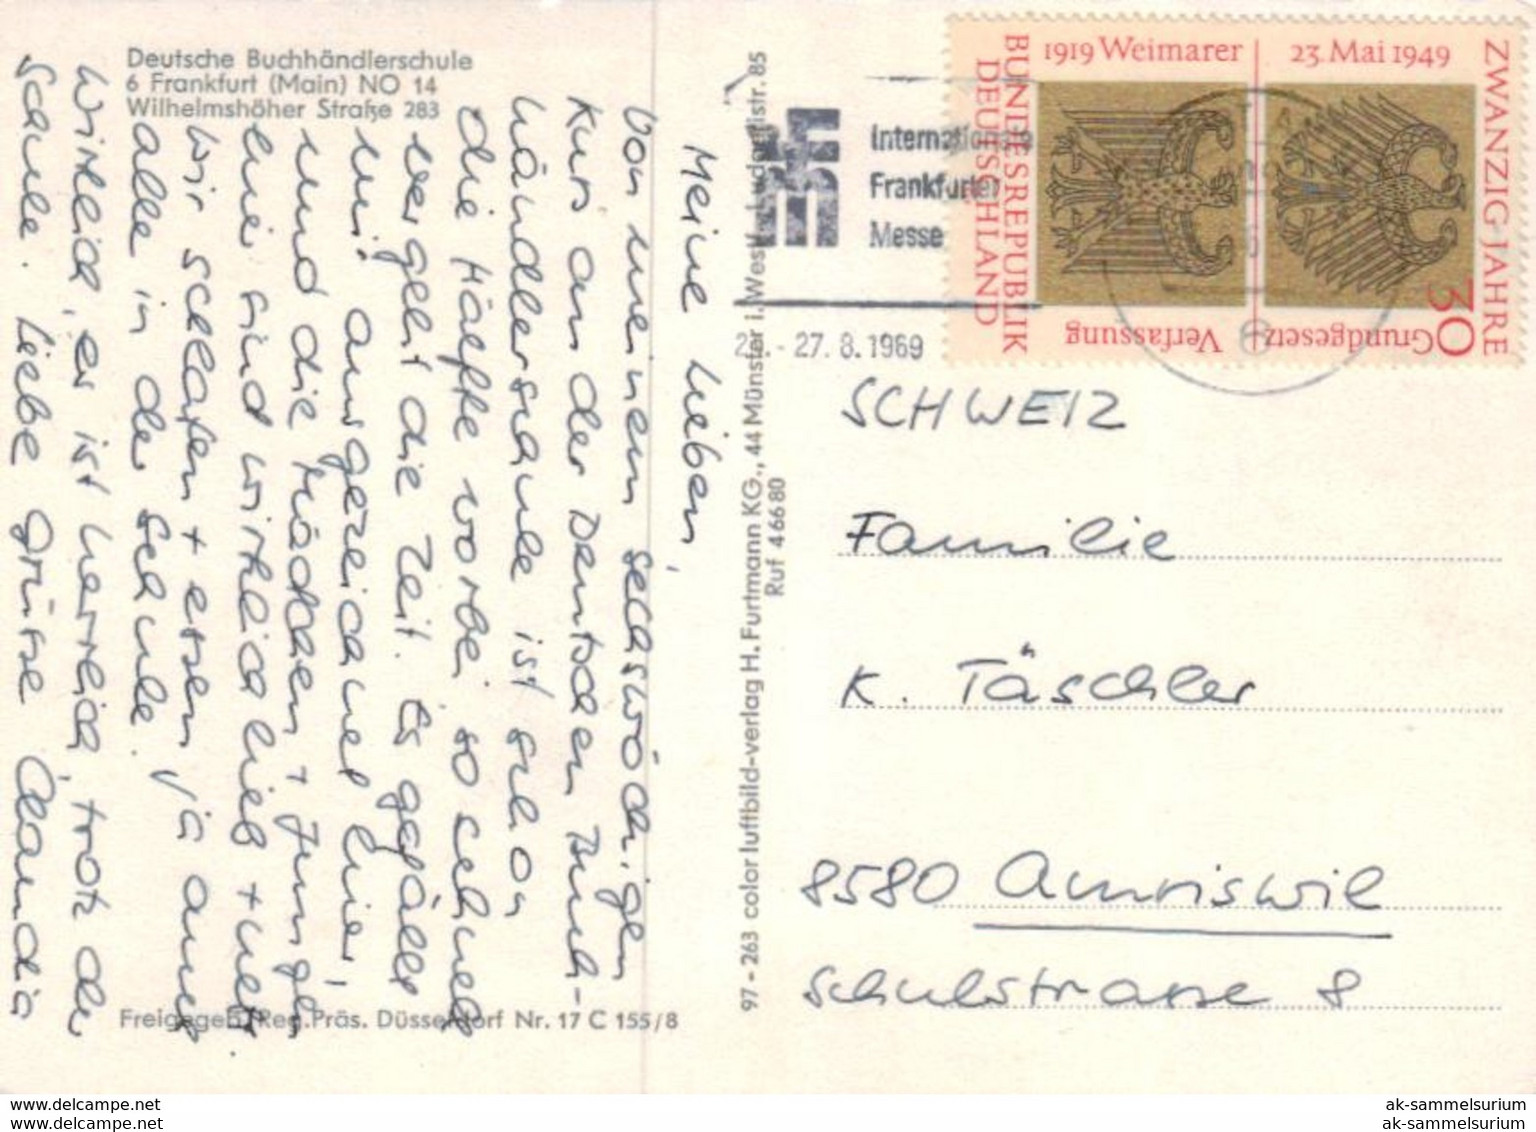 Deutsche Buchhändlerschule
6 Frankfurt (Main) NO 14
Wilhelmshöher Straße 283
Meine Lieben,
Von meinem sechswöchigen
Kurs an der Deutschen Buch-
händlerschule ist schon
die Hälfte vorbei so schnell
vergeht die Zeit. Es gefällt
mir ausgezeichnet hier,
und die Mädchen + Jungen
hier sind wirklich lieb + nett.
Wir schlafen + essen ja auch
alle in der Schule.
Wirklich, es ist herrlich, trotz der
Schule. Liebe Grüsse Claudia
Freigegeben Reg.Präs. Düsseldorf Nr. 17 C 155/8
97 - 263 color luftbild-verlag H. Furtmann KG., 44 Münster i. Westf. 85
Ruf 4 66 80
Internationale
Frankfurter
Messe
27. 8. 1969
1919 Weimarer
Verfassung
23. Mai 1949
Grundgesetz
ZWANZIG JAHRE
BUNDESREPUBLIK
DEUTSCHLAND
30
6
SCHWEIZ
Familie
K. Täschler
8580 Amriswil
Schulstrasse 8
www.delcampe.net
ak-sammelsurium
www.delcampe.net
ak-sammelsurium